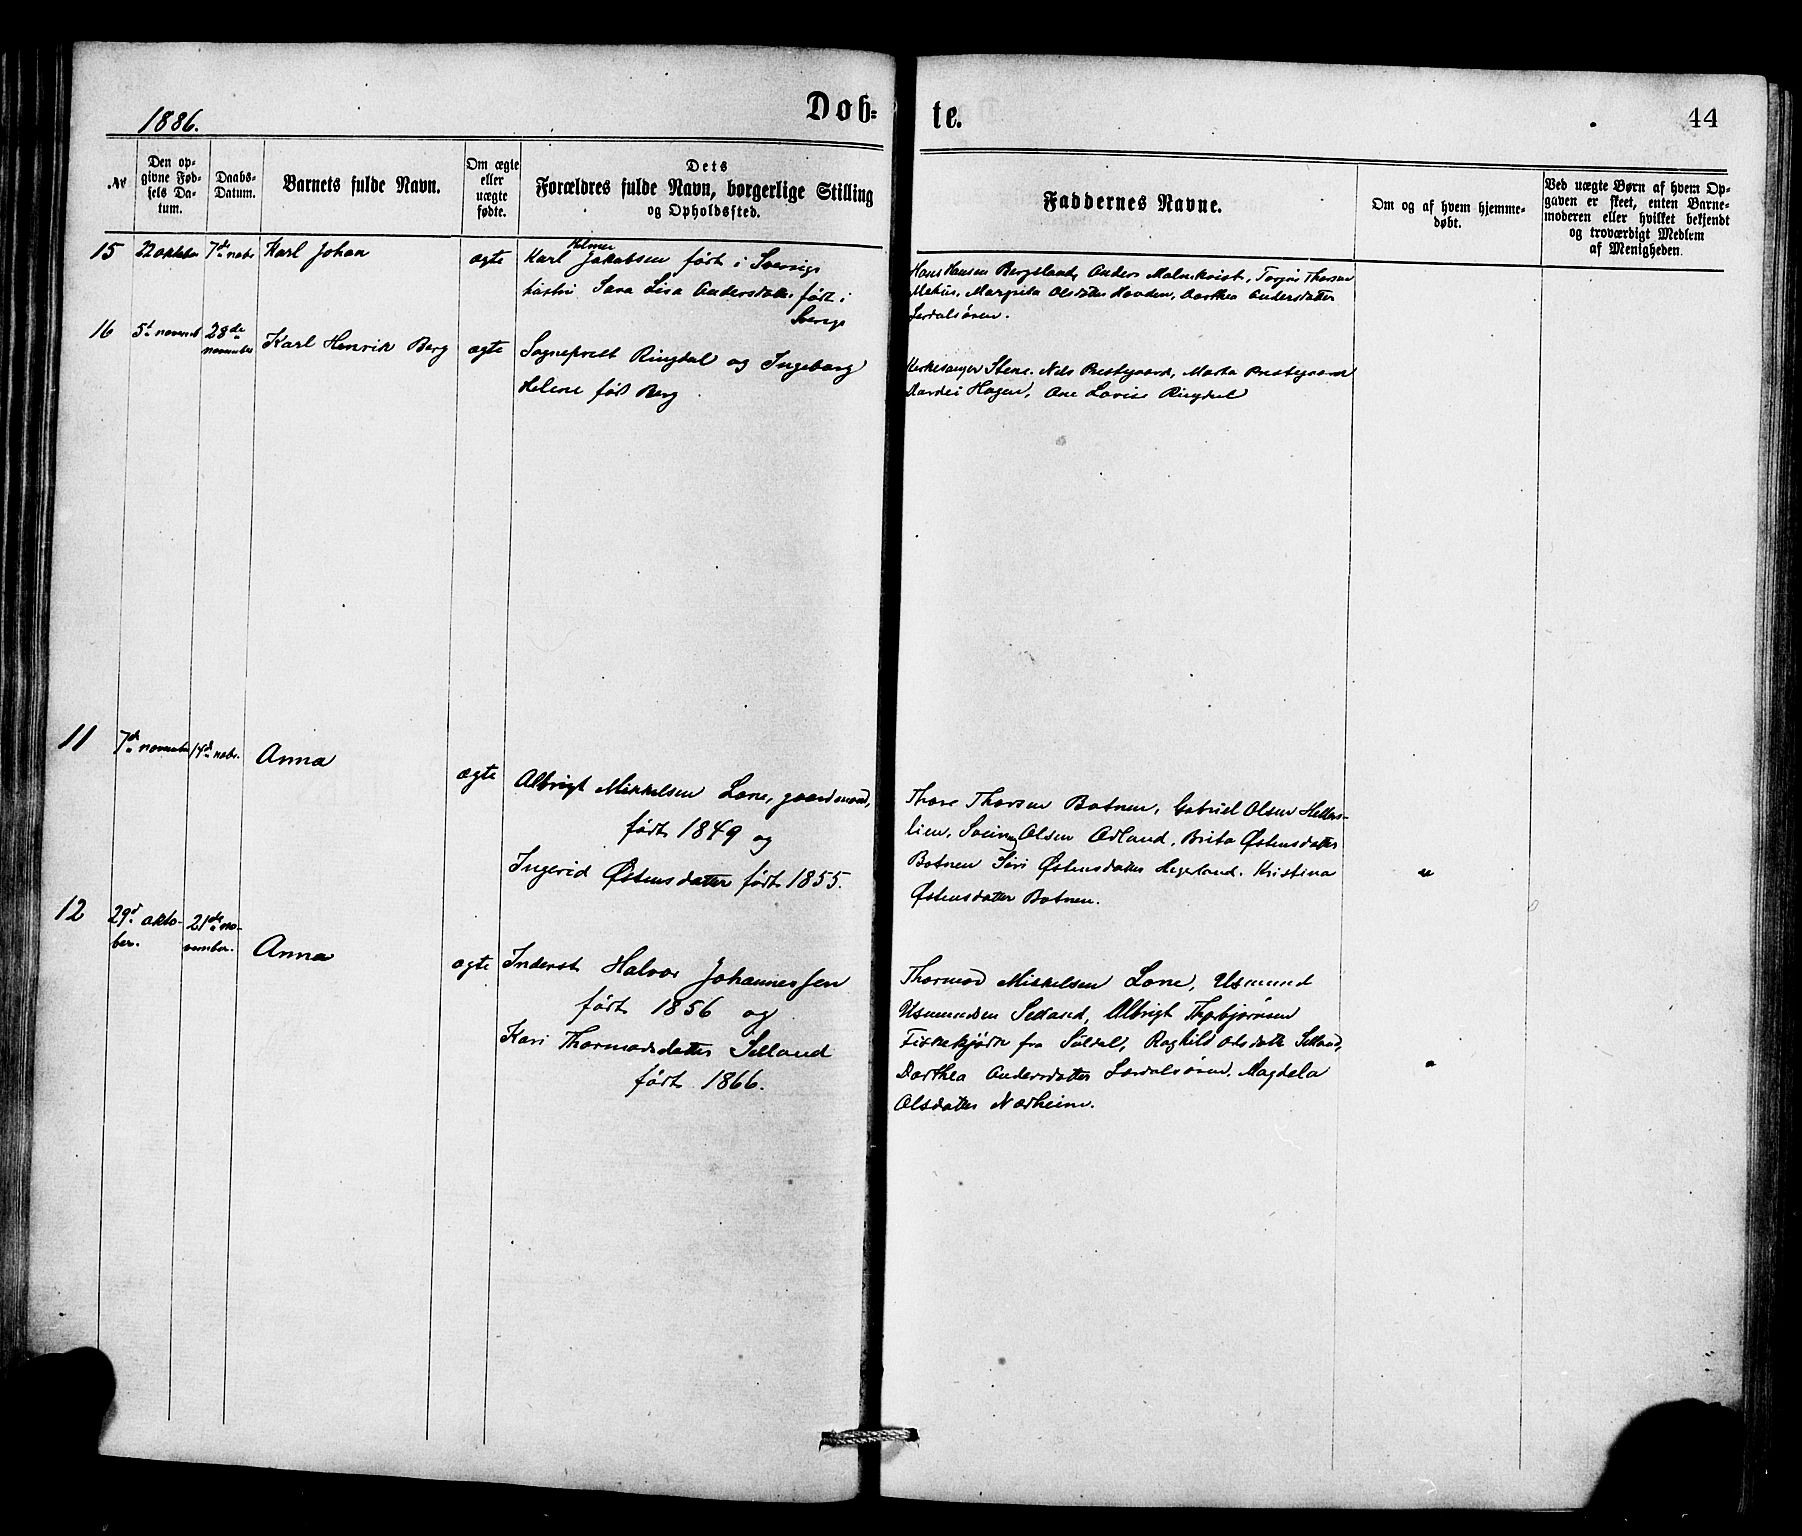 1886.
Døb-
te.
44
No
Den op-
givne Fød-
sels Da-
tum.
Daabs-
Datum.
Barnets fulde Navn.
Om ægte
eller
uægte
fødte.
Dets
Forældres fulde Navn, borgerlige Stilling
og Opholdssted.
Faddernes Navne.
Om og af hvem hjemme-
døbt.
Ved uægte Børn af hvem Op-
gaven er skeet, enten Barne-
moderen eller hvilket bekjendt
og troværdigt Medlem
af Menigheden.
15 22 oktober 7de nobr Karl Johan ægte
Helmer
Karl Jakobsen født i Sverige
hustru Sara Lisa Andersdatter født i
Sverige
Hans Hansen Bergeland, Anders Malmkvist, Torjus Thorsen
Margreta Olsdatter Dorthea Andersdatter
16 5te novemb 28de
november
Karl Henrik Berg ægte
Sogneprest Ringdal og Ingeborg
Helene fød Berg
Kirkesanger Stene. Nels Prestgaard, Marta Prestegaard
Hagen, Ane Lovise Ringdal
11 7de november 14de nobr. Anna ægte
Albrigt Mikkelsen Lone, gaardmand,
født 1849 og
Ingerid Østensdatter født 1855.
Thore Thorsen Botnen, Gabriel Olsen Hellers-
lien, Svein Olsen Ødland, Brita Østensdatter
Botnen Siri Østensdatter Hegerland. Kristina
Østensdatter Botnen.
12 29de okto-
ber.
21de no-
vember.
Anna ægte
Inderst Halvor Johannessen
født 1856 og
Kari Thormodsdatter Selland
født 1866.
Thormod Mikkelsen Lone, Usmund
Usmundsen Selland, Albrigt Thobjørnsen
fra Suldal, Raghild Olsdatter Selland,
Dorthea Andersdatter Magdela
Olsdatter Nærheim.